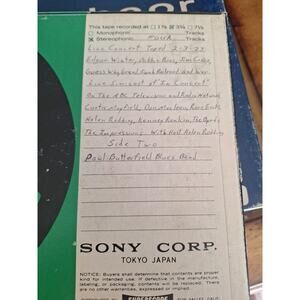 This tape recorded at ☐ 1⅞ ☒ 3¾ ☐ 7½
☐ Monophonic Tracks
☒ Stereophonic Four Tracks
Live Concert Taped 2-3-73
Edgar Winter, Debbie Jim Croce,
Guess Who, Bread Grand Funk Railroad And War.
Live Simulcast of "In Concert"
On The ABC Television and Radio Network
Curtis Mayfield, Rare Earth
Helen Reddy, Kenny Rankin, The
The Impressions With Host Helen Reddy
Side Two
Paul Butterfield Blues Band
SONY CORP.
TOKYO JAPAN
NOTICE: Buyers shall determine that contents are proper
kind for intended use. If defective in manufacture,
labeling, or packaging, contents will be replaced. There are
no other warranties, expressed or implied.
SUPERSCOPE
SUN VALLEY, CALIF.